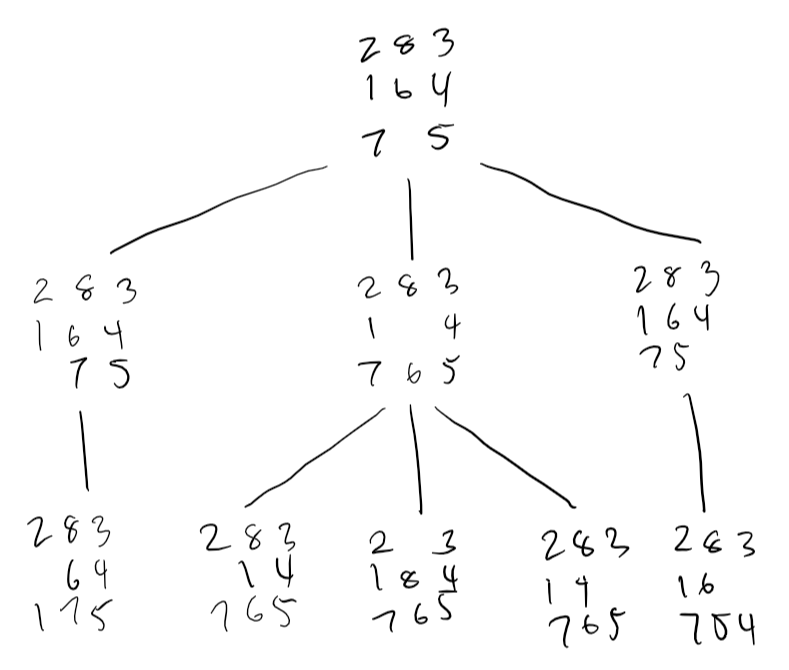 2 8 3
1 6 4
7 5
2 8 3
1 6 4
7 5
2 8 3
1 4
7 6 5
2 8 3
1 6 4
7 5
2 8 3
6 4
1 7 5
2 8 3
1 4
7 6 5
2 3
1 8 4
7 6 5
2 8 3
1 4
7 6 5
2 8 3
1 6
7 5 4